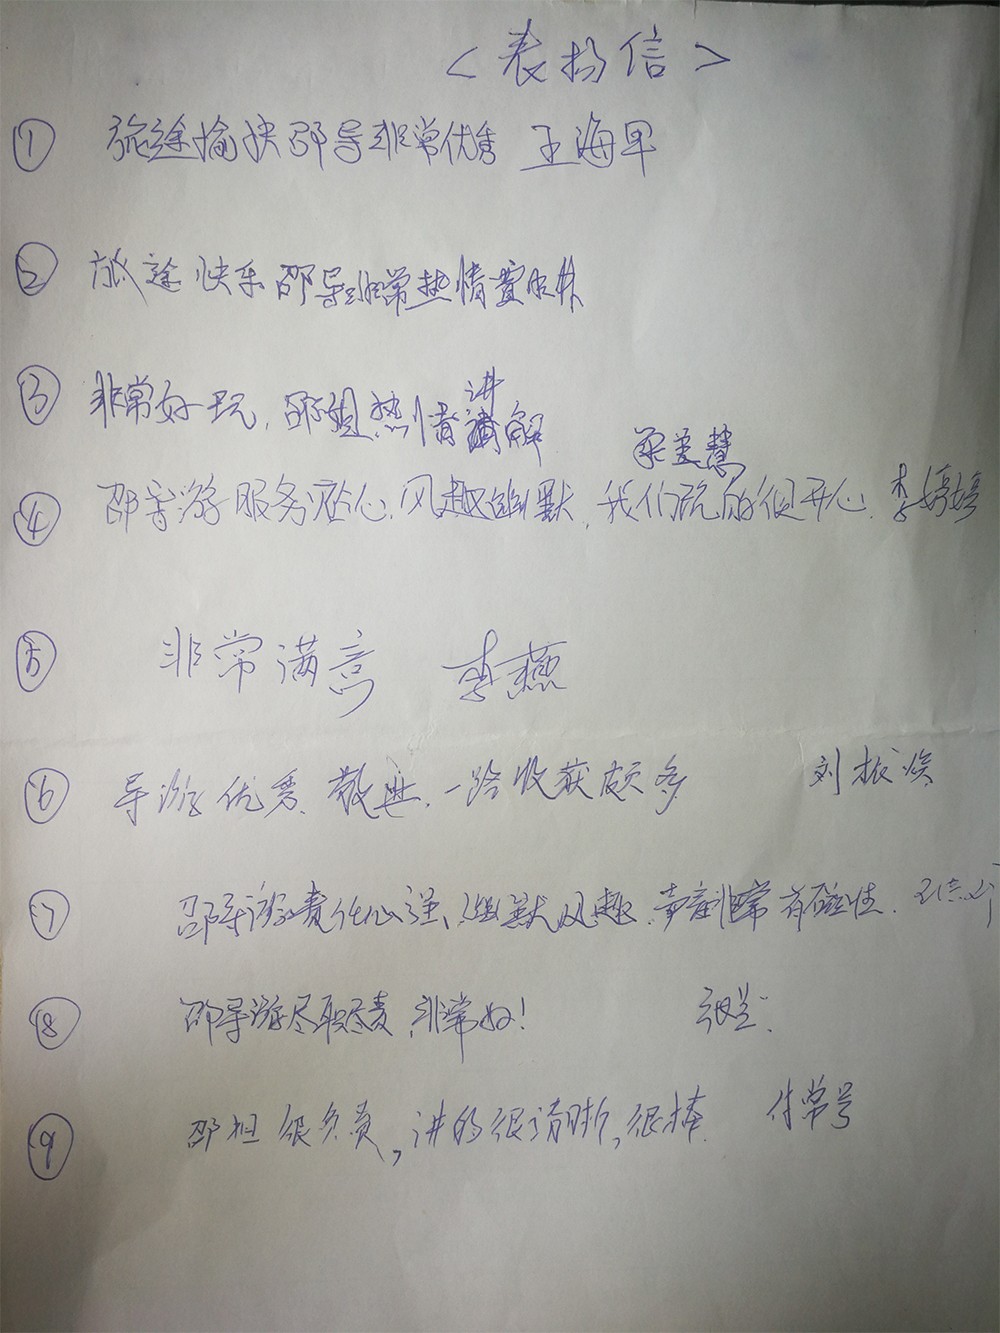 <表扬信>
① 旅途愉快邵导非常优秀 王海早
② 旅途快乐邵导非常热情
③ 非常好玩,邵姐热情讲解
梁美慧
④ 邵导游服务贴心,风趣幽默,我们玩的很开心. 李婷婷
⑤ 非常满意 李燕
⑥ 导游优秀、敬业,一路收获颇多 刘振
⑦ 邵导游责任心强、幽默风趣,声音非常有磁性.
⑧ 邵导游尽职尽责,非常好!
⑨ 邵姐很负责,讲的很清晰,很棒. 付常号